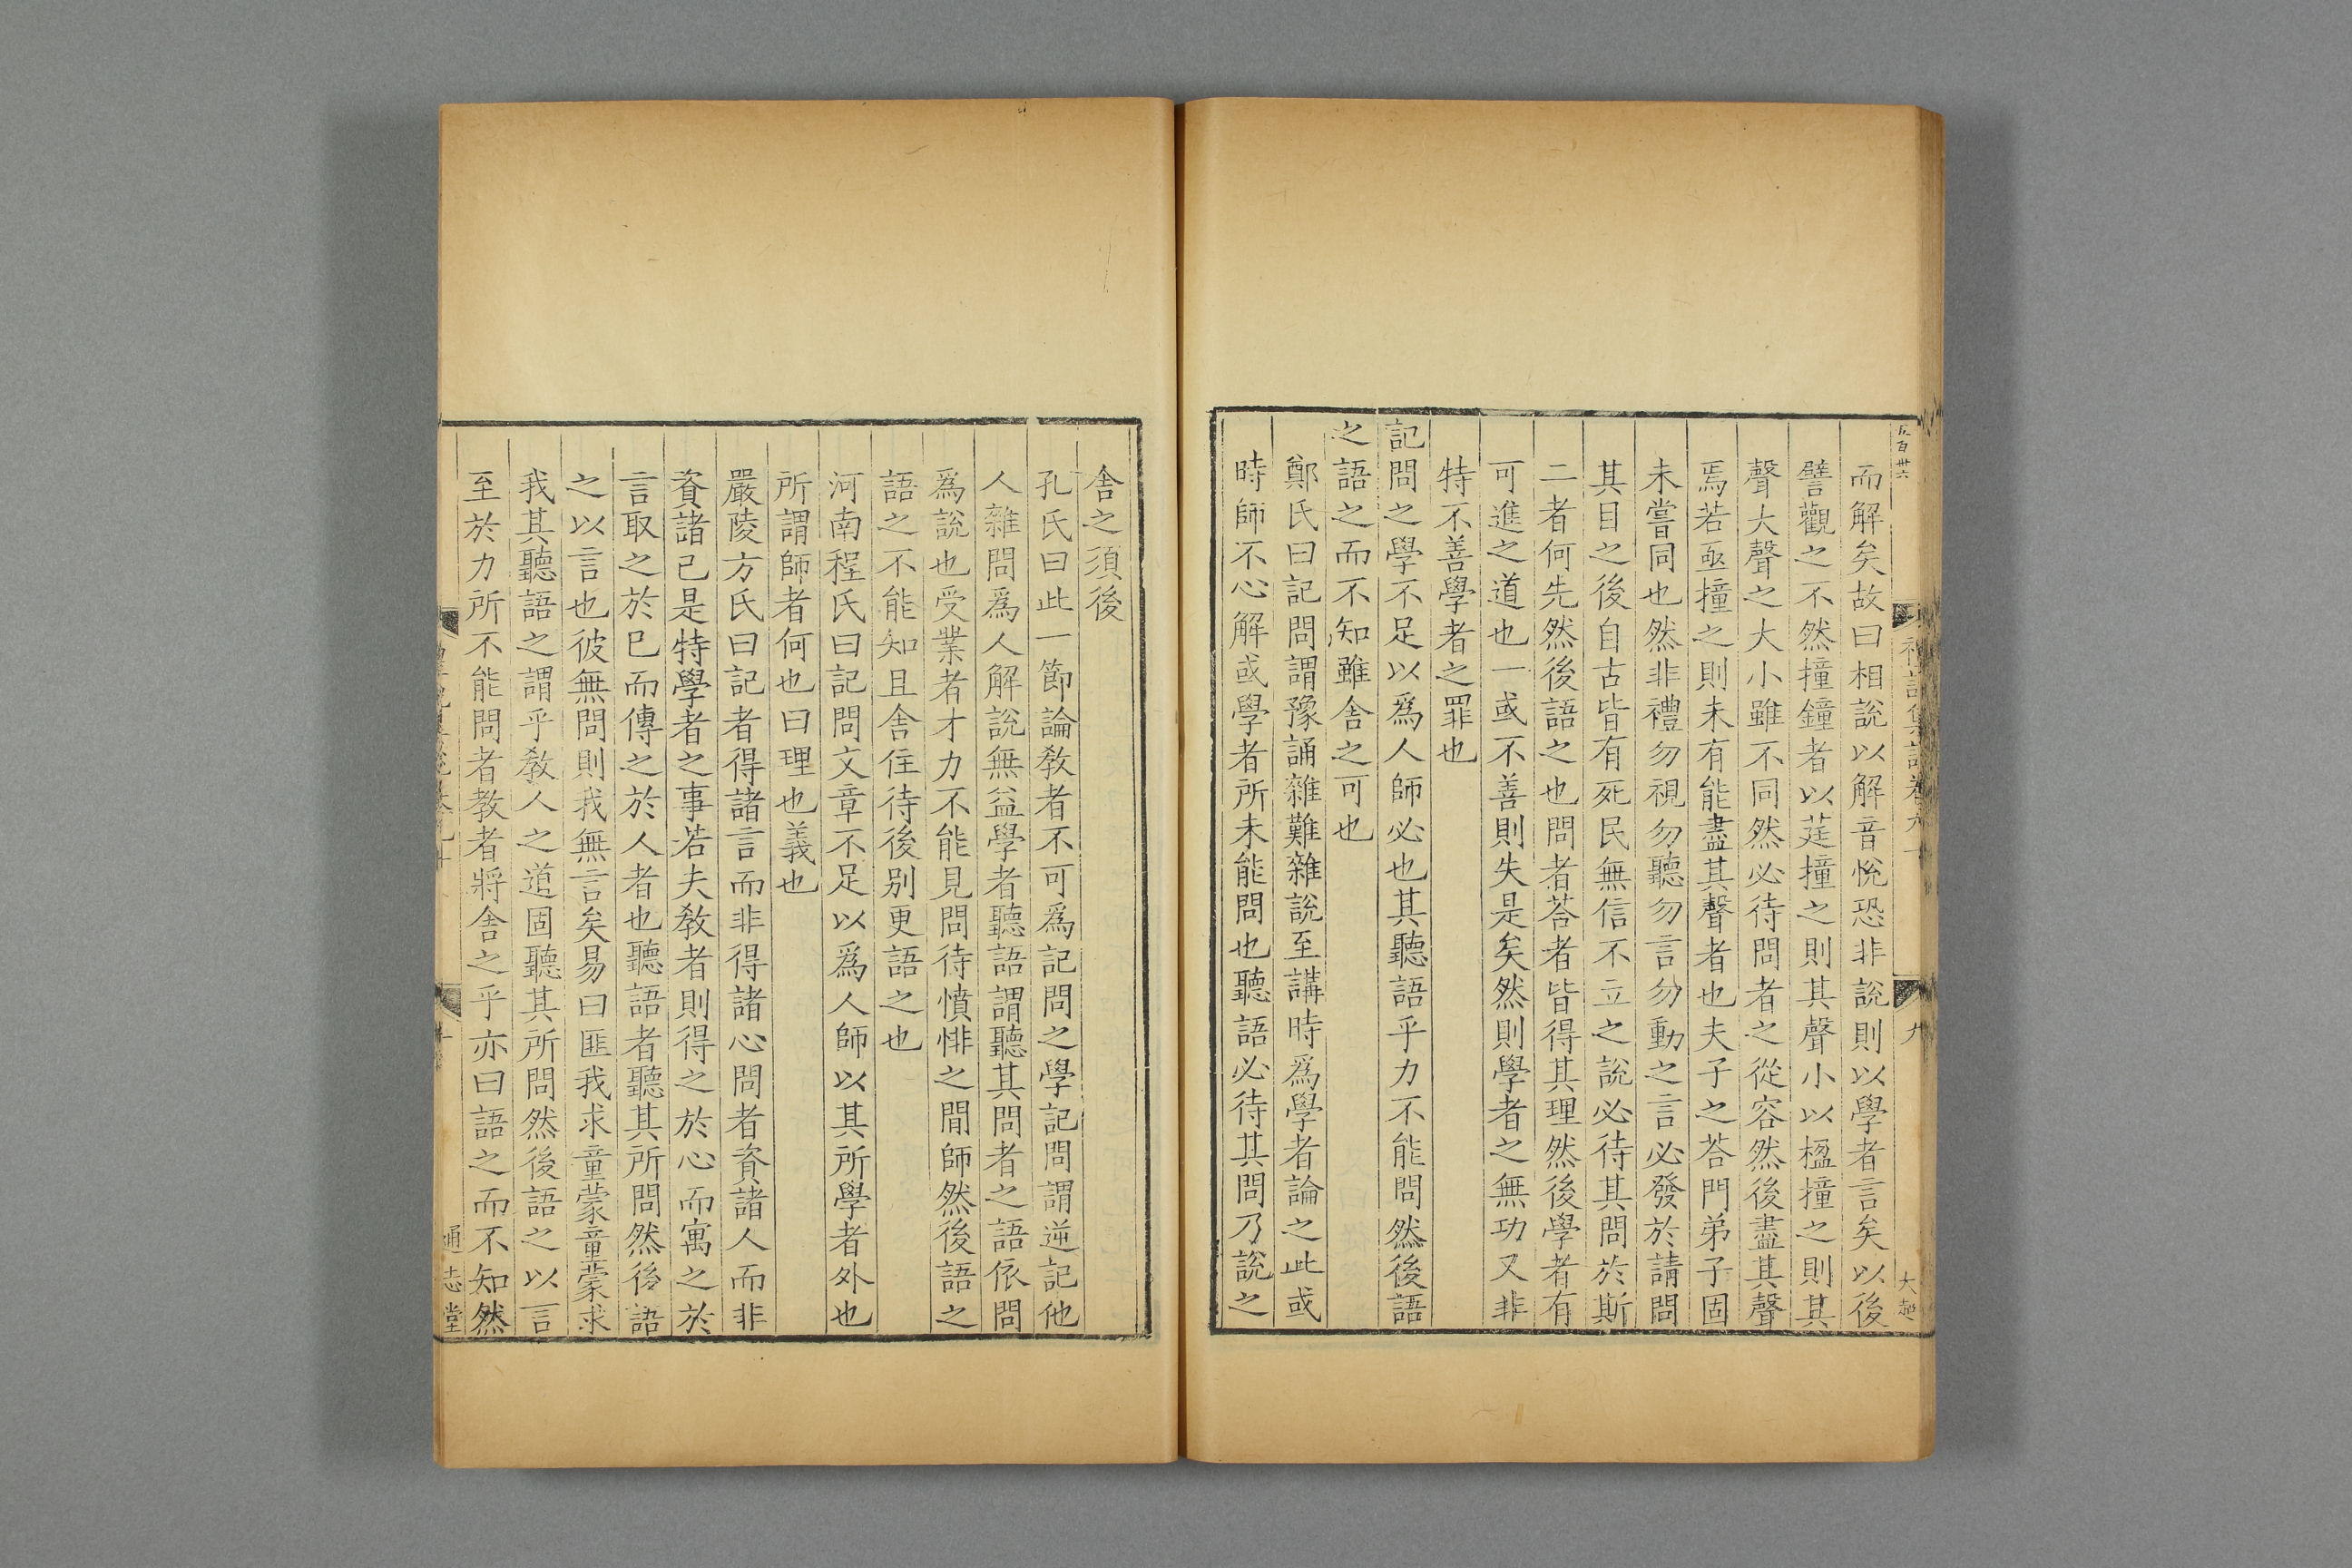 而解矣故曰相說以解音悅恐非說則以學者言矣以後
譬觀之不然撞鐘者以莛撞之則其聲小以楹撞之則其
聲大聲之大小雖不同然必待問者之從容然後盡其聲
焉若亟撞之則未有能盡其聲者也夫子之荅門弟子固
未嘗同也然非禮勿視勿聽勿言勿動之言必發於請問
其目之後自古皆有死民無信不立之說必待其問於斯
二者何先然後語之也問者荅者皆得其理然後學者有
可進之道也一或不善則失是矣然則學者之無功又非
特不善學者之罪也
記問之學不足以爲人師必也其聽語乎力不能問然後語
之語之而不知雖舍之可也
鄭氏曰記問謂豫誦雜難雜說至講時爲學者論之此或
時師不心解或學者所未能問也聽語必待其問乃說之
舍之須後
孔氏曰此一節論敎者不可爲記問之學記問謂逆記他
人雜問爲人解說無益學者聽語謂聽其問者之語依問
爲說也受業者才力不能見問待憤悱之間師然後語之
語之不能知且舍住待後別更語之也
河南程氏曰記問文章不足以爲人師以其所學者外也
所謂師者何也曰理也義也
嚴陵方氏曰記者得諸言而非得諸心問者資諸人而非
資諸己是特學者之事若夫敎者則得之於心而寓之於
言取之於已而傳之於人者也聽語者聽其所問然後語
之以言也彼無問則我無言矣易曰匪我求童蒙童蒙求
我其聽語之謂乎敎人之道固聽其所問然後語之以言
至於力所不能問者教者將舍之乎亦曰語之而不知然
通志堂